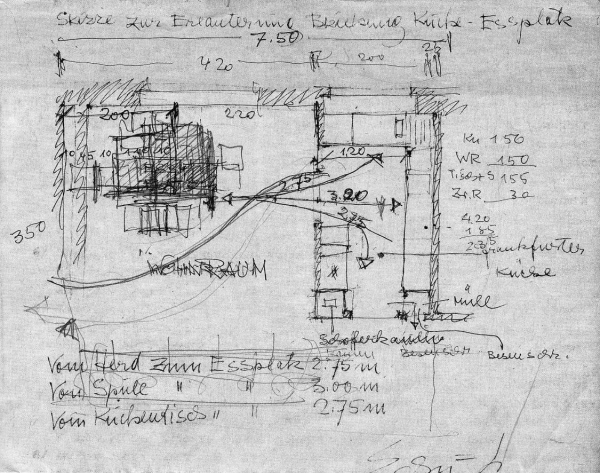 Skizze zur Erläuterung Beziehung Küche - Essplatz
7.50
420
200
25
200
220
120
Kü 150
WR 150
155
30
10 45 10
2.75
3.20
2.75
350
4.20
1.85
Frankfurter
Küche
WOHNRAUM
Müll
Besenschr.
Vom Herd zum Essplatz 2.75 m
Vom Spüle " " 3.00 m
Vom Küchentisch " 2.75 m